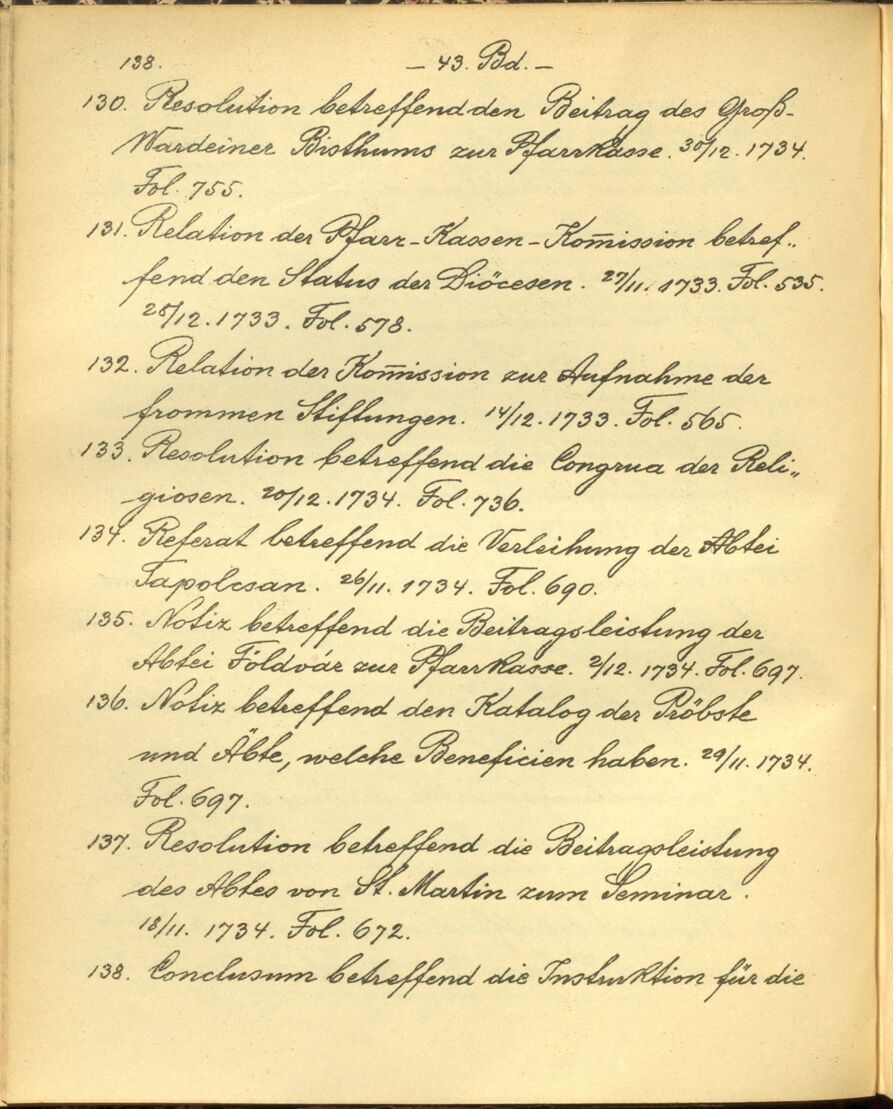 138. — 43. Bd. —
130. Resolution betreffend den Beitrag des Groß-
Wardeiner Bisthums zur Pfarrkasse. 30/12. 1734.
Fol. 755.
131. Relation der Pfarr-Kassen-Kom̅ission betref„
fend den Status der Diöcesen. 27/11. 1733. Fol. 535.
28/12. 1733. Fol. 578.
132. Relation der Kom̅ission zur Aufnahme der
frommen Stiftungen. 14/12. 1733. Fol. 565.
133. Resolution betreffend die Congrua der Reli„
giosen. 20/12. 1734. Fol. 736.
134. Referat betreffend die Verleihung der Abtei
Tapolcsan. 26/11. 1734. Fol. 690.
135. Notiz betreffend die Beitragsleistung der
Abtei Földvár zur Pfarrkasse. 2/12. 1734. Fol. 697.
136. Notiz betreffend den Katalog der Pröbste
und Äbte, welche Beneficien haben. 29/11. 1734.
Fol. 697.
137. Resolution betreffend die Beitragsleistung
des Abtes von St. Martin zum Seminar.
18/11. 1734. Fol. 672.
138. Conclusum betreffend die Instruktion für die